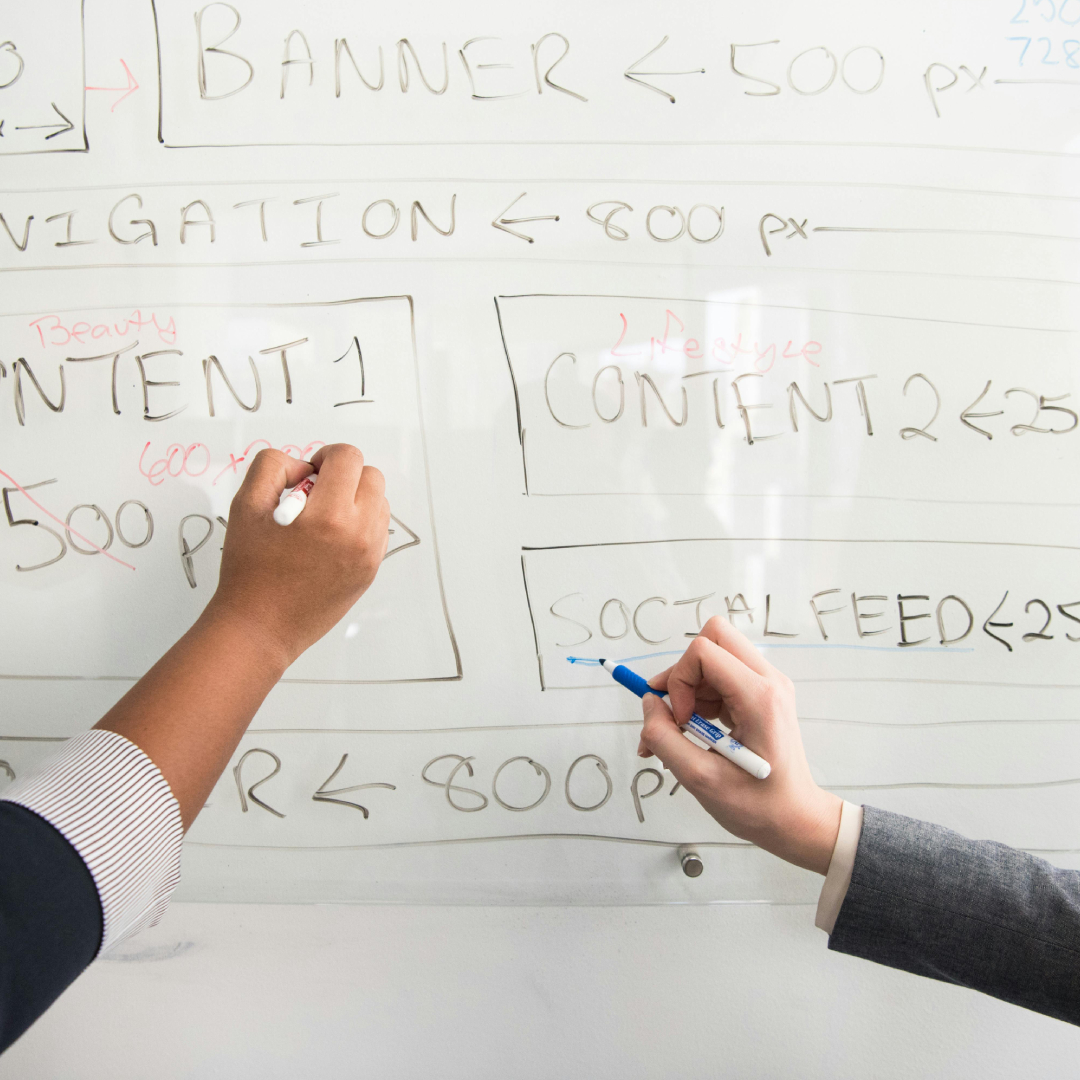 BANNER ← 500 px
728
VIGATION ← 800 px
Beauty
NTENT 1
600 x
500 px
Lifestyle
CONTENT 2 ← 25
SOCIAL FEED ← 25
R ← 800 px